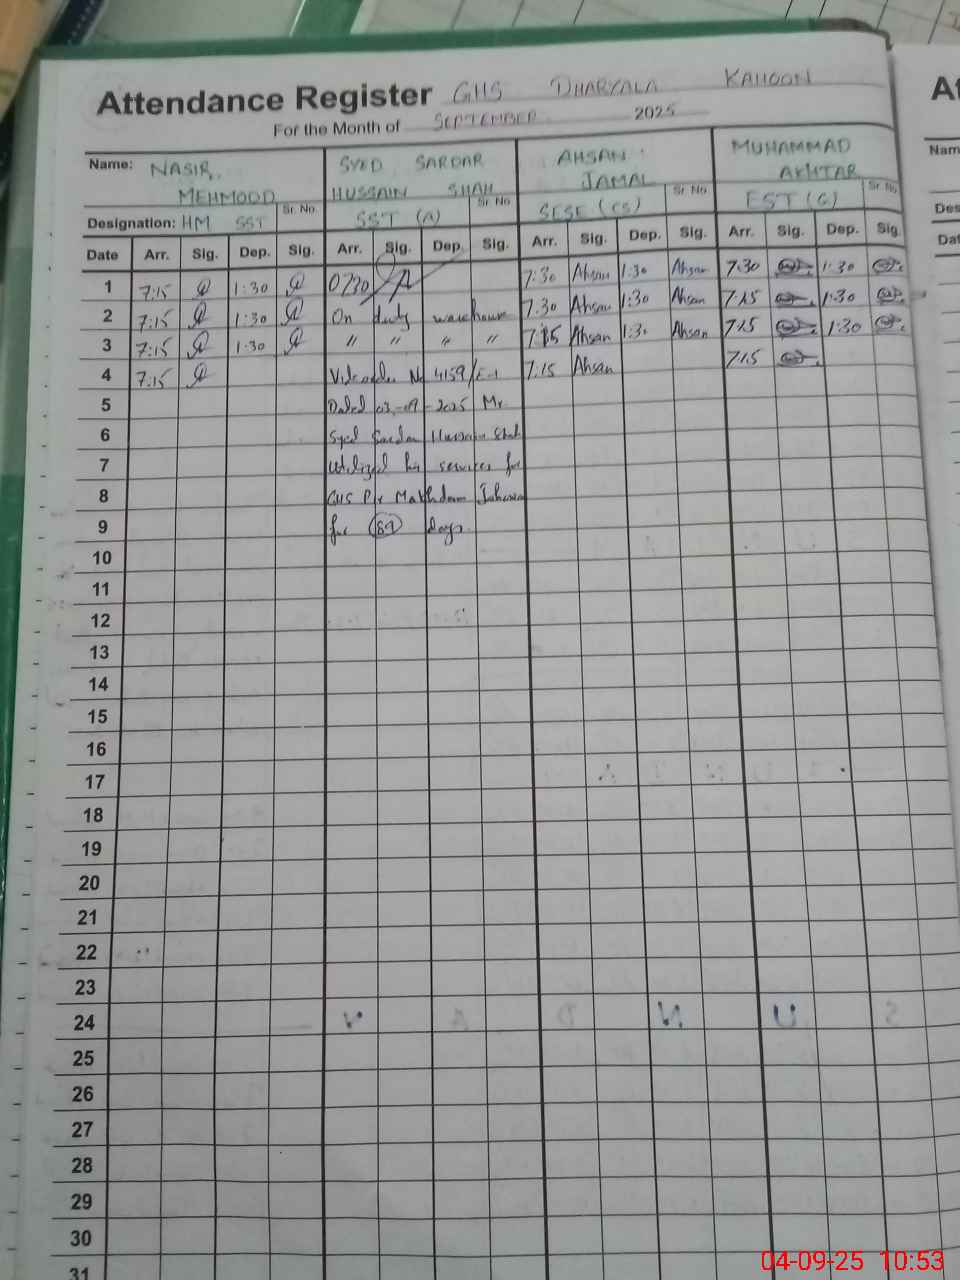 Attendance Register GHS DHARYALA KAHOON
For the Month of SEPTEMBER 2025
Name: NASIR MEHMOOD
SYED SARDAR HUSSAIN SHAH
AHSAN JAMAL
MUHAMMAD AKHTAR
Designation: HM SST Sr. No.
SST (A) Sr. No
SESE (CS) Sr. No
EST (G) Sr. No
Date Arr. Sig. Dep. Sig. Arr. Sig. Dep. Sig. Arr. Sig. Dep. Sig. Arr. Sig. Dep. Sig.
1 7:15 1:30 0730 7:30 Ahsan 1:30 Ahsan 7:30 1:30
2 7:15 1:30 On duty warehouse 7:30 Ahsan 1:30 Ahsan 7:15 1:30
3 7:15 1:30 " " " " 7:15 Ahsan 1:30 Ahsan 7:15 1:30
4 7:15 Vide order No 4159/ 7:15 Ahsan 7:15
5 Dated 03-09-2025 Mr.
6 Syed Sardar Hussain Shah
7 Utilized his services for
8 GHS Pir Makhdum
9 for 89 days
10
11
12
13
14
15
16
17
18
19
20
21
22
23
24
25
26
27
28
29
30
31
At
Nam
Des
Dat
04-09-25 10:53